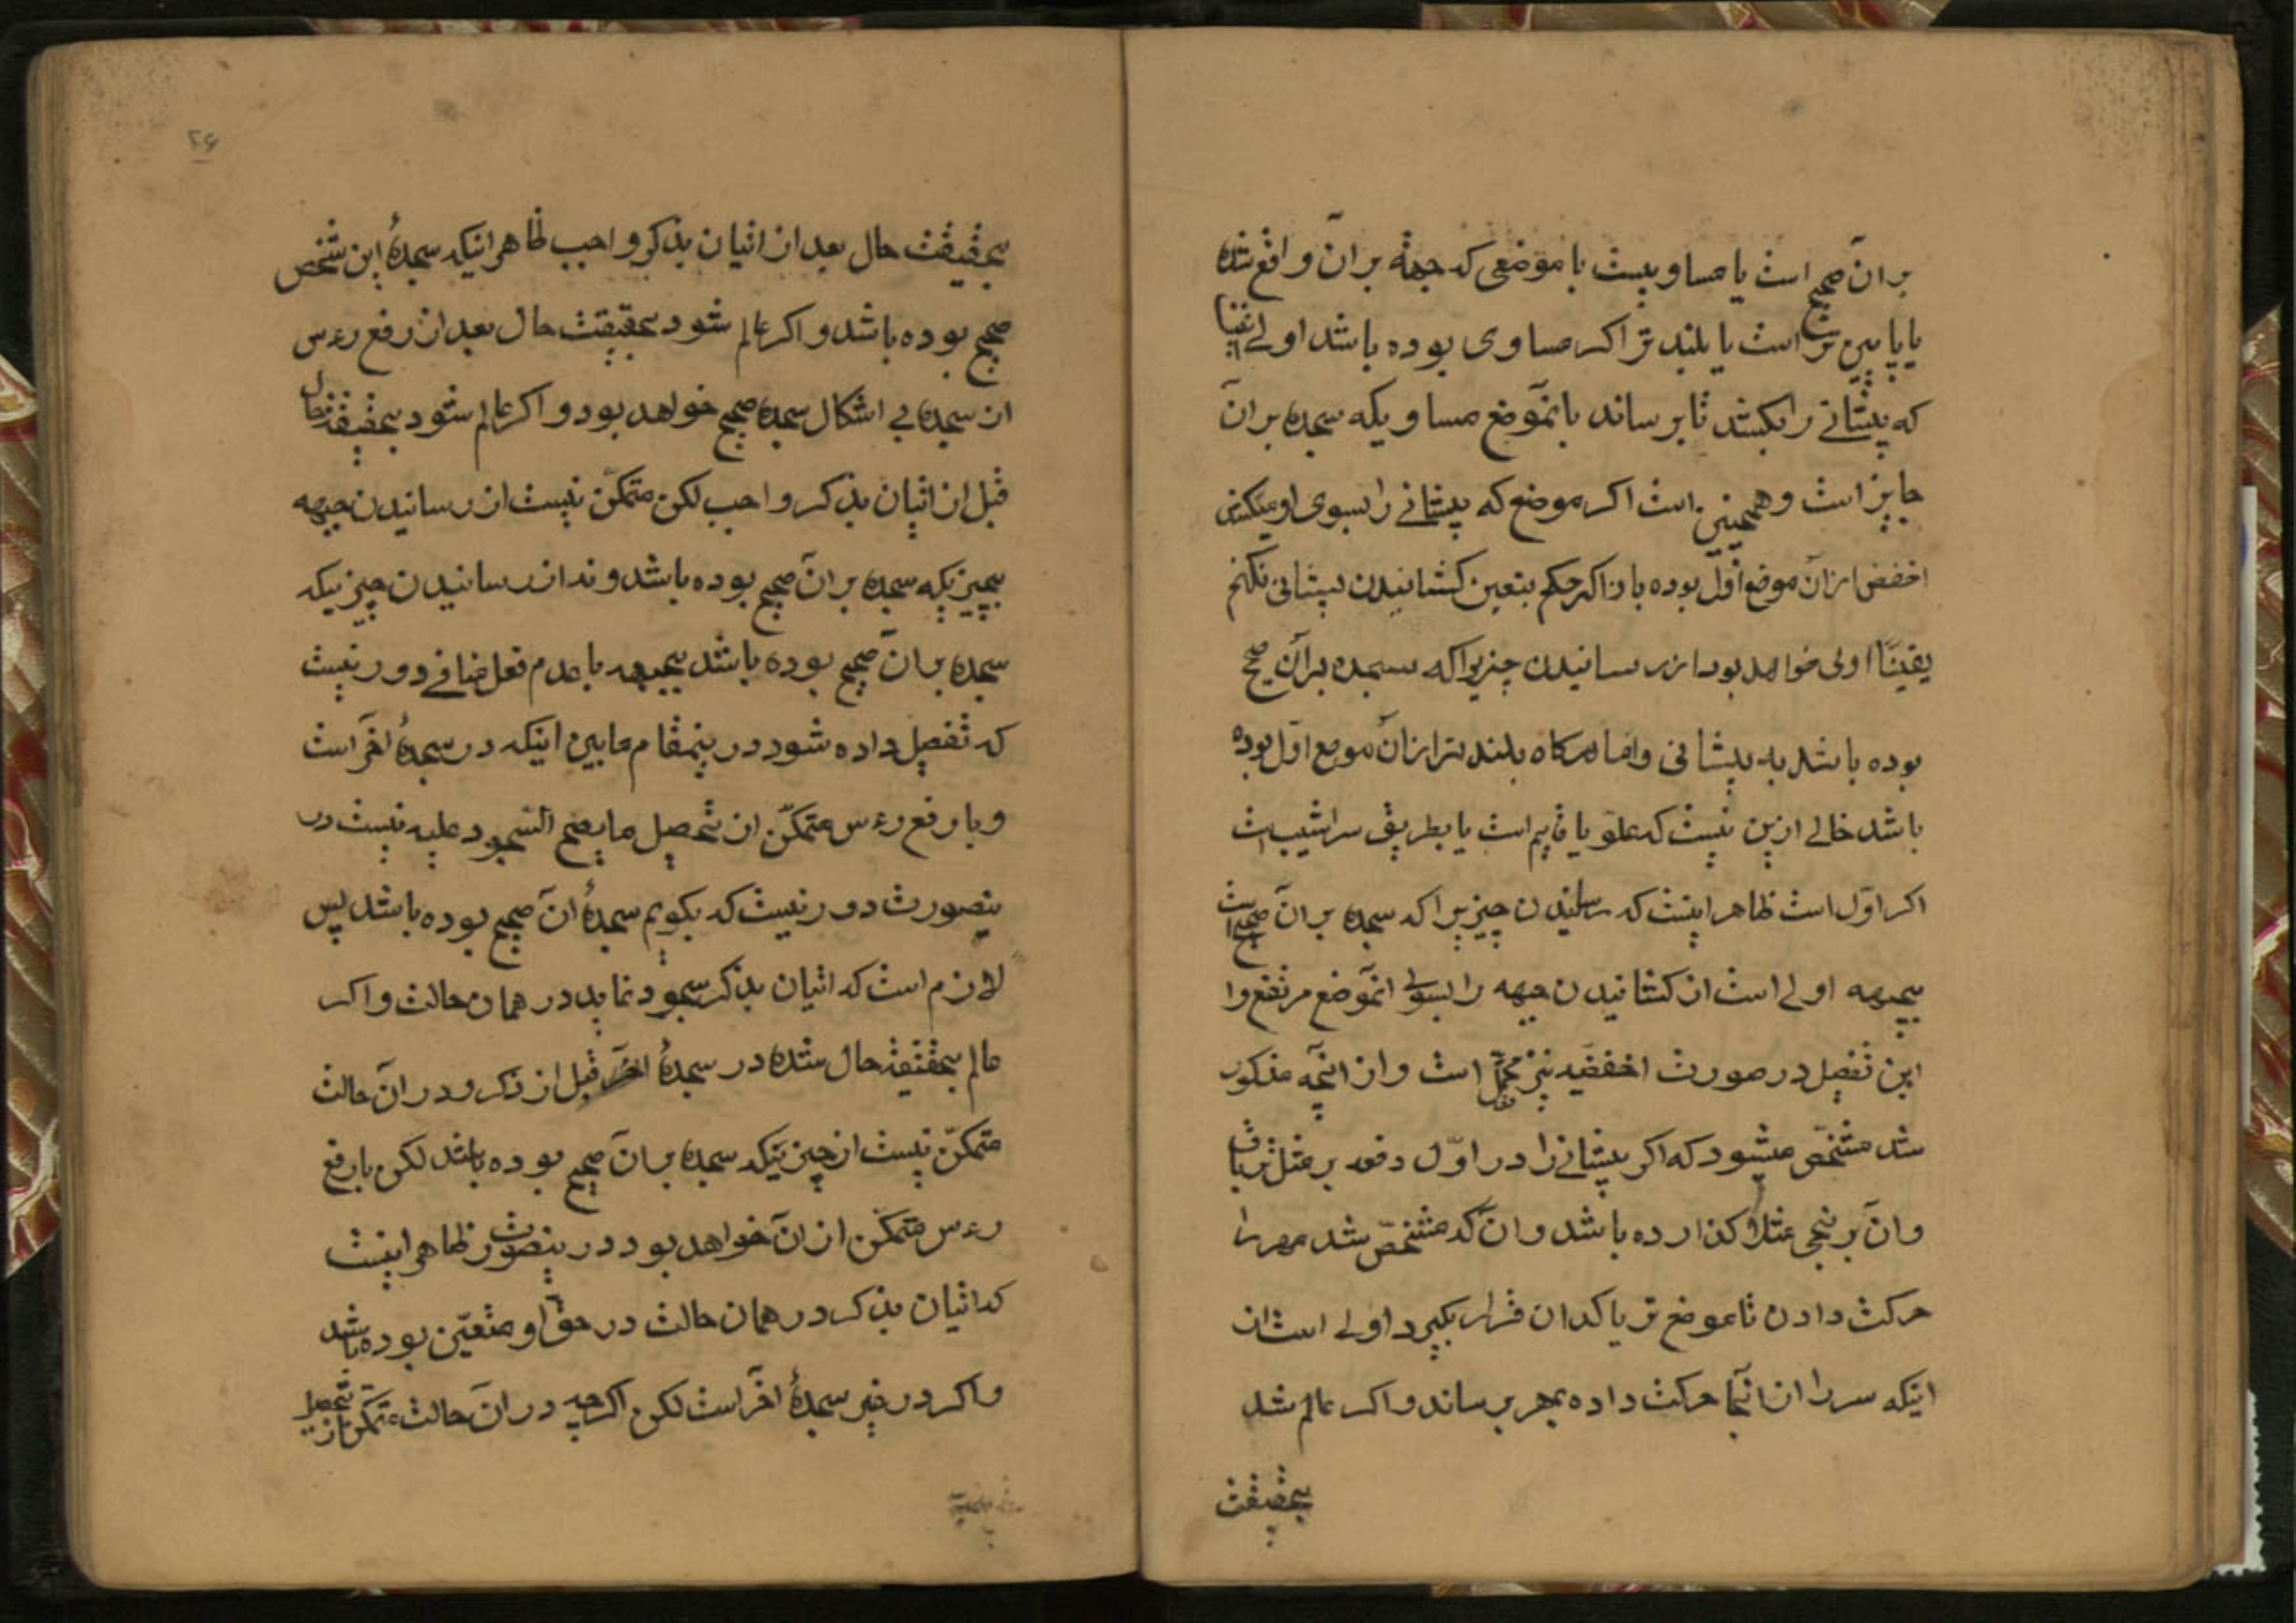 بر آن صحیح است یا مساویست با موضعی که جبهه بر آن واقع شده
یا پایین تر است یا بلند تر اکر مساوی بوده باشد اولی اینست
که پیشانی را بکشد تا برساند بآنموضع مساوی که سجده بر آن
جایز است و همچنین است اکر موضع که پیشانی را بسوی او میکشد
اخفض از آن موضع اول بوده باز اکر حکم بتعین کشانیدن پیشانی نکنم
یقینًا اولی خواهد بود از رسانیدن چیزیرا که سجده بر آن صحیح
بوده باشد به پیشانی و اما هرکاه بلند تر از آن موضع اول بوده
باشد خالی ازین نیست که علو یا قایم است یا بطریق سراشیب است
اکر اول است ظاهر اینست که رسانیدن چیزیرا که سجده بر آن صحیح است
بجبهه اولی است از کشانیدن جبهه را بسوی آنموضع مرتفع و
این تفصیل در صورت اخفضیه نیز محتمل است و از آنچه مذکور
شد مشخص میشود که اکر پیشانی را در اول دفعه بر مثل
و آن بر نحی مثلا کذارده باشد و آن که مشخص شد مهر را
حرکت دادن تا موضع تریاک در آن قرار بکیرد اولی است از
اینکه سر را از آنجا حرکت داده بمهر برساند و اکر عالم شد
بحقیقت
۲۶
بحقیقت حال بعد از اتیان بذکر واجب ظاهر اینکه سجدهٔ این شخص
صحیح بوده باشد و اکر عالم شود بحقیقت حال بعد از رفع رءس
از سجده بی اشکال سجده صحیح خواهد بود و اکر عالم شود بحقیقت حال
قبل از اتیان بذکر واجب لکن متمکن نیست از رسانیدن جبهه
بچیزیکه سجده بر آن صحیح بوده باشد و نه از رسانیدن چیزیکه
سجده بر آن صحیح بوده باشد بجبهه با عدم فعل منافی دور نیست
که تفصیل داده شود در ینمقام مابین اینکه در سجدهٔ آخر است
و با رفع رءس متمکن از تحصیل ما یصح السجود علیه نیست در
ینصورت دور نیست که بکویم سجدهٔ آن صحیح بوده باشد پس
لازم است که اتیان بذکر سجود نماید در همان حالت و اکر
عالم بحقیقت حال شده در سجدهٔ آخر قبل از ذکر و در آن حالت
متمکن نیست از چیزیکه سجده بر آن صحیح بوده باشد لکن با رفع
رءس متمکن از آن خواهد بود در ینصورت ظاهر اینست
که اتیان بذکر در همان حالت در حق او متعین بوده باشد
و اکر در غیر سجدهٔ آخر است لکن اکرچه در آن حالت متمکن از تحصیل